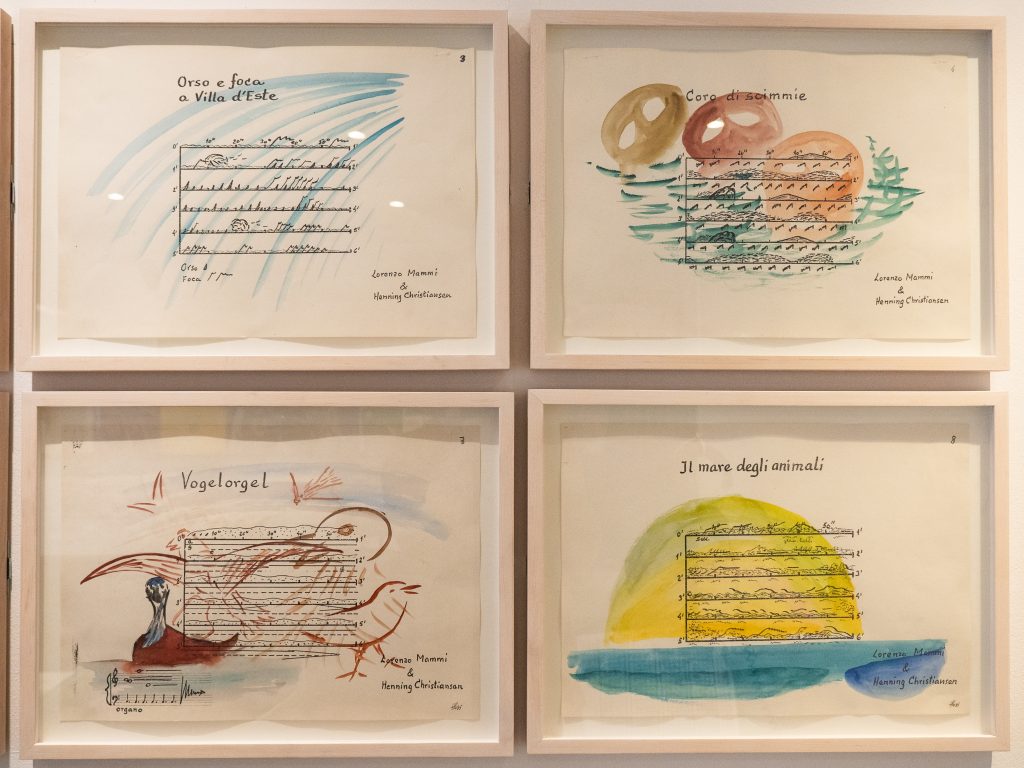 3
Orso e foca
a Villa d'Este
10" 20" 30" 40" 50"
0' 1'
1' 2'
2' 3'
3' 4'
4' 5'
5' 6'
Orso
Foca
Lorenzo Mammi
&
Henning Christiansen
Coro di scimmie
Lorenzo Mammi
&
Henning Christiansen
7
Vogelorgel
organo
Lorenzo Mammi
&
Henning Christiansen
8
Il mare degli animali
0' 1'
1' 2'
2' 3'
3' 4'
4' 5'
5' 6'
Lorenzo Mammi
&
Henning Christiansen